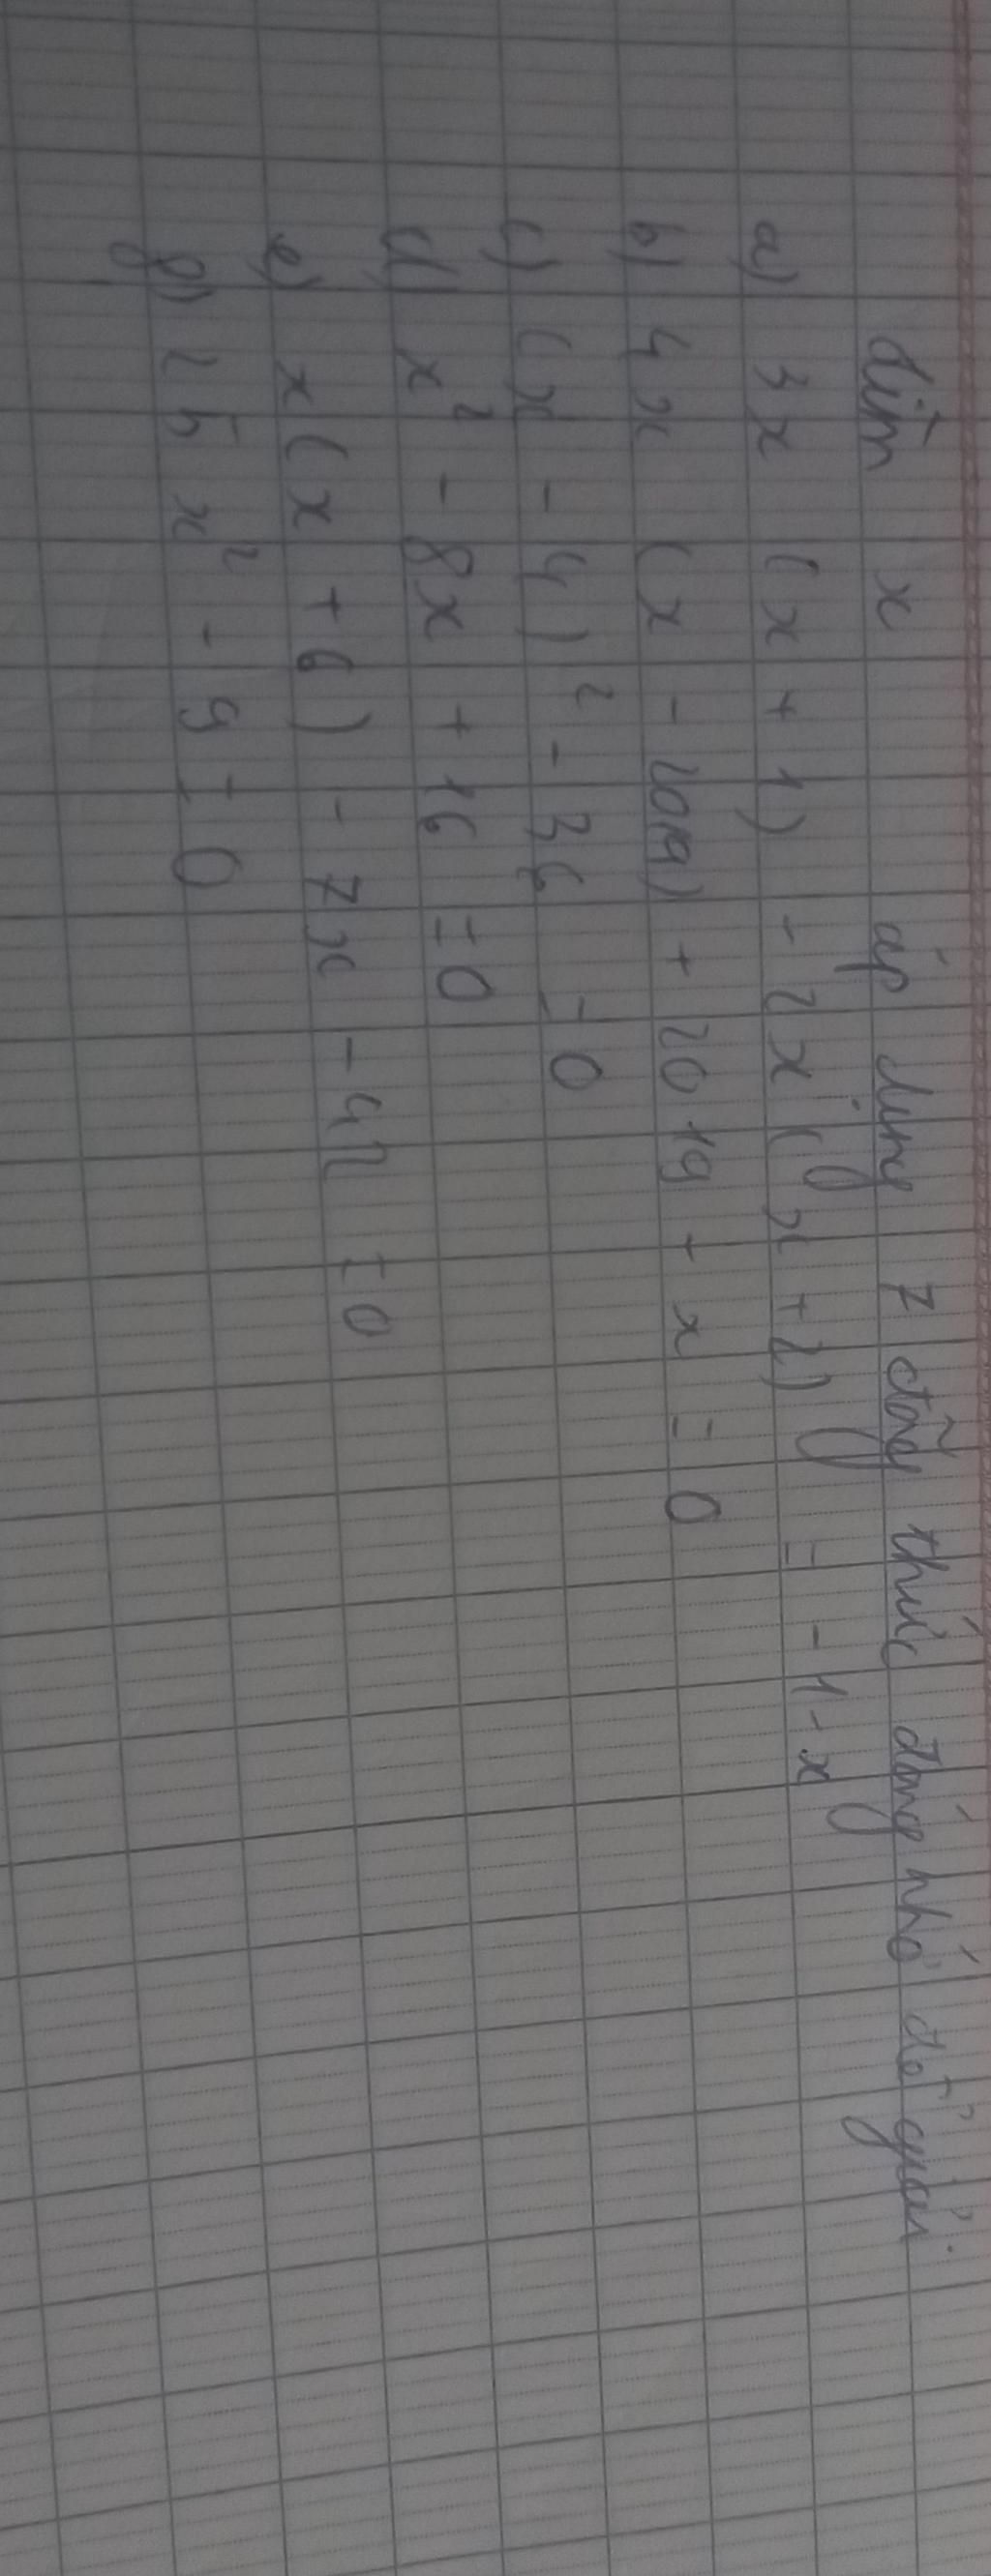 tìm x áp dụng 7 đẳg thức đáng nhớ để giải.
a) 3x (x + 1) - 2x (x + 2) = - 1 - x
b) 4x (x - 2019) + 2019 - x = 0
c) (x - 4)² - 36 = 0
d) x² - 8x + 16 = 0
e) x (x + 6) - 7x - 42 = 0
g) 25x² - 9 = 0